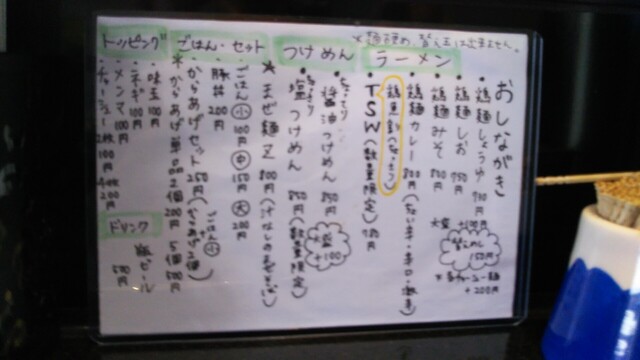 ※麺硬め、替え玉は出来ません。
おしながき
ラーメン
鶏麺しょうゆ 750円
鶏麺しお 750円
鶏麺みそ 850円
鶏麺カレー 800円
TSW(数量限定) 780円
大盛 +100円
替えめし 150円
+200円
つけめん
醤油つけめん 850円
塩つけめん 850円(数量限定)
大盛 +100
★まぜ麺 800円
ごはん・セット
ごはん 小 100円 中 150円 大 200
豚丼 200円
からあげセット 250円
★からあげ単品 2個 200円 5個 500円
トッピング
味玉 100円
ネギ 100円
メンマ 100円
チャーシュー 2枚 100円 4枚 200円
ドリンク
瓶ビール 500円